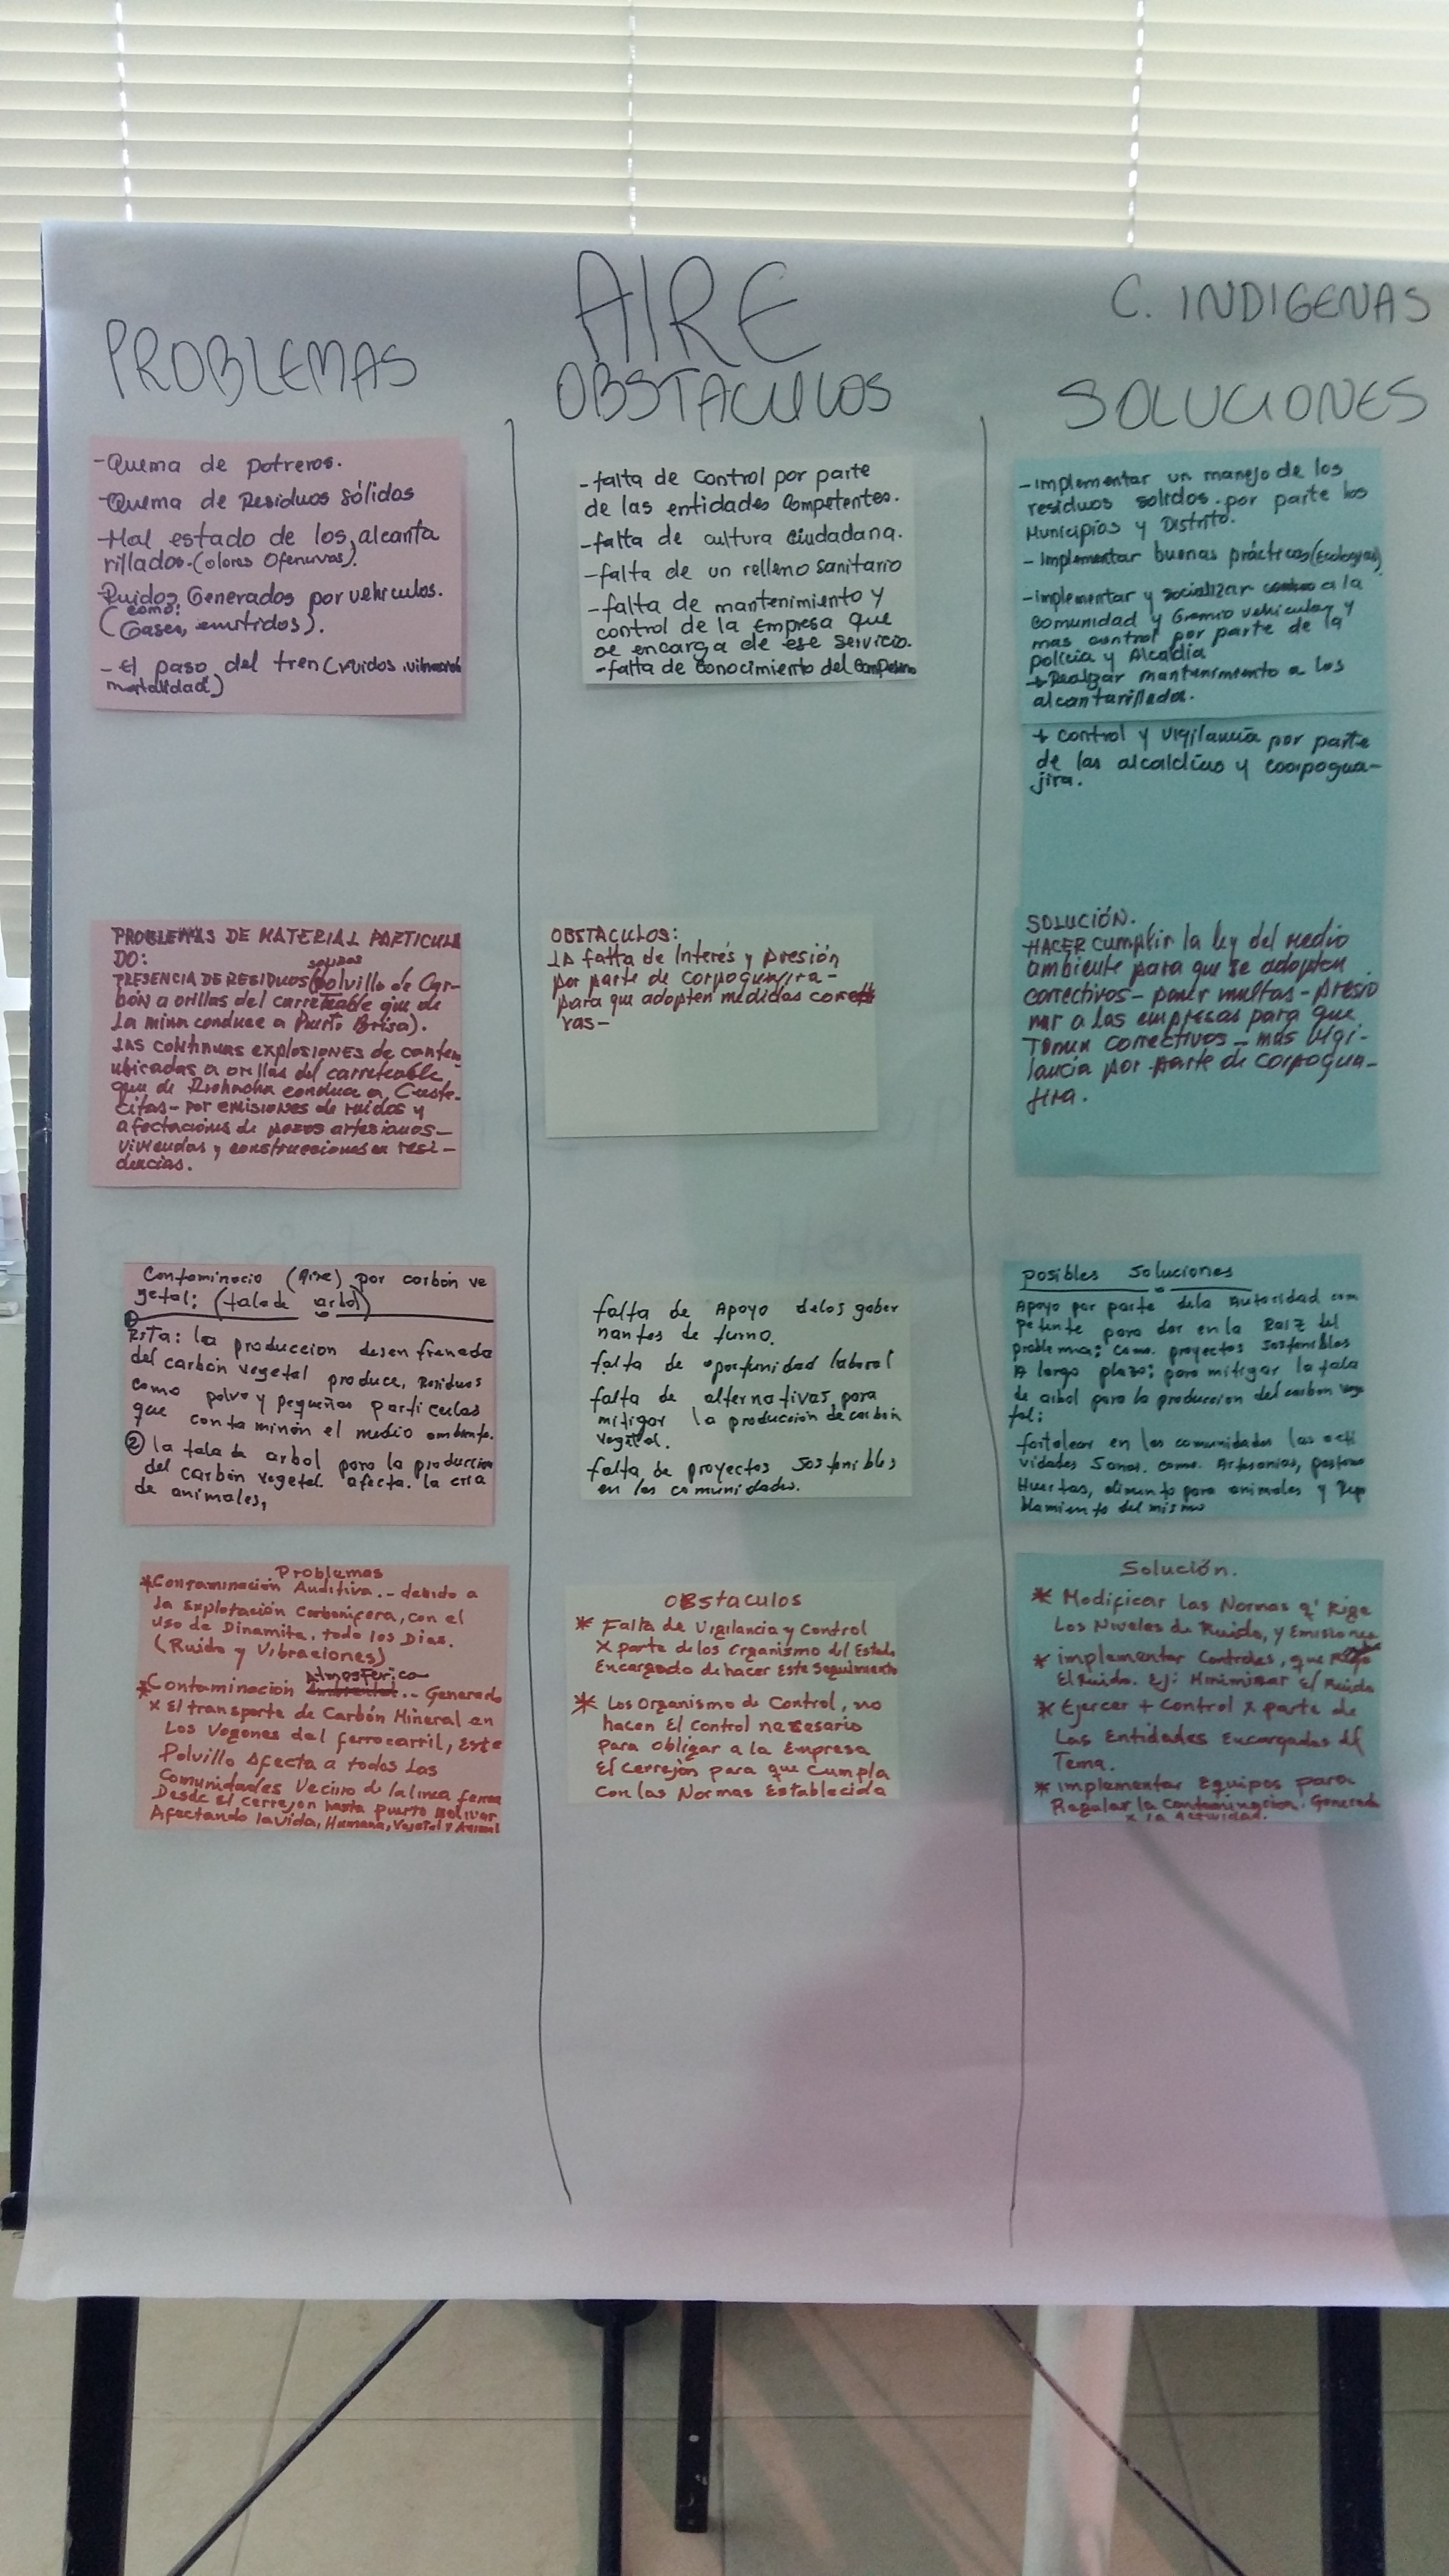 AIRE
C. INDIGENAS
PROBLEMAS
OBSTACULOS
SOLUCIONES
-Quema de potreros.
-Quema de Residuos sólidos
-Mal estado de los alcanta
rillados.(olores Ofensivos).
Ruidos Generados por vehiculos.
(como:
Gases, emitidos).
- El paso del tren (ruidos
mortalidad)
-falta de control por parte
de las entidades competentes.
-falta de cultura ciudadana.
-falta de un relleno sanitario
-falta de mantenimiento y
control de la Empresa que
se encarga de ese servicio.
-falta de conocimiento del
-Implementar un manejo de los
residuos solidos.por parte los
Municipios y Distrito.
- Implementar buenas prácticas
-implementar y socializar a la
comunidad y Gremio vehicular y
mas control por parte de la
policia y Alcadia
+Realizar mantenimiento a los
alcantarillados.
+ control y vigilancia por parte
de las alcaldias y coorpogua-
jira.
PROBLEMAS DE MATERIAL PARTICULA
DO:
SOLIDOS
PRESENCIA DE RESIDUOS (polvillo de Car-
bón a orillas del carreteable que de
La mina conduce a Puerto Brisa).
LAS continuas explosiones de
ubicadas a orillas del carreteable
que de Riohacha conduce a Custe-
citas- por emisiones de ruidos y
afectaciones de pozos artesianos-
viviendas y construcciones en resi-
dencias.
OBSTACULOS:
LA falta de Interés y presión
por parte de corpoguajira-
para que adopten medidas
SOLUCIÓN.
HACER cumplir la ley del medio
ambiente para que se adopten
correctivos- poner multas- presio
nar a las empresas para que
Tomen correctivos - más vigi-
lancia por parte de corpogua-
jira.
Contaminacio (Aire) por carbon ve
getal: (tala de arbol)
①
Rsta: la produccion desenfrenada
del carbón vegetal produce, Residuos
como polvo y pequeñas particulas
que contaminán el medio ambiente.
② la tala de arbol para la produccion
del carbón vegetal. afecta. la cria
de animales,
falta de Apoyo delos gober
nantes de turno.
falta de oportunidad laboral
falta de alternativas, para
mitigar la producción de carbón
vegetal.
falta de proyectos Sostenibles
en las comunidades.
posibles Soluciones
Apoyo por parte dela Autoridad com
petente para dar en la Raiz del
problema: como proyectos Sostenibles
A largo plazo; para mitigar la tala
de arbol para la produccion del carbon vege
tal;
fortalecer en las comunidades las acti
vidades Sanas. como. Artesanias, pastoreo
Huertas, alimento para animales y Rep
blamiento del mismo
Problemas
*Contaminación Auditiva.- debido a
la Explotación Carbonifera, con el
uso de Dinamita. todo los Dias.
(Ruido y Vibraciones)
Atmosferica
*Contaminacion .. Generado
x El transporte de Carbón Mineral en
Los Vagones del ferrocarril, Este
Polvillo Afecta a todos Las
Comunidades Vecino de la linea ferrea
Desde el cerrejon hasta puerto Bolivar
Afectando la vida, Humana, Vegetal y Animal
OBstaculos
* Falta de Vigilancia y Control
x parte de los Organismo del Estado
Encargado de hacer Este Seguimiento
* Los Organismo de Control, no
hacen El control necesario
para obligar a la Empresa
El cerrejón para que Cumpla
con las Normas Establecida
Solución.
* Modificar las Normas q' Rige
Los Niveles de Ruido, y Emisiones
* implementar Controles, que
El ruido. Ej: Minimizar El Ruido
* Ejercer + Control x parte de
Las Entidades Encargadas del
Tema.
* implementar Equipos para
Regular la Contaminacion. Generada
x la Actividad.